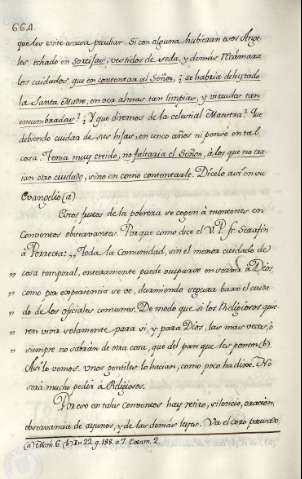 664.
que les visto acura pautiar. Si con alguna hubieran esos Ange-
les echado en Sortijas, vestidos de seda, y demás
los cuidados, que en contentar al Señor, ¿se habría deleytado
la Santa Madre, en ver almas tan limpias, y virtudes tan
encumbradas? ¿Y que diremos de la celestial Maestra? Tu-
debiendo cuidar de sus hijas, en cinco años ni pensó en tal
cosa. Tenía muy creído, no faltaría el Señor, à los que no tra-
ían otro cuidado, sino en como contentarle. Dícelo así en su
Evangelio (a)
Estos frutos de la pobreza se cogen à montones en
Conventos observantes. Porque como dice el V. P. fr. Serafín
à Porrecta: „Toda la Comunidad, sin el menor cuidado de
„ cosa temporal, enteramente puede ocuparse en servir à Dios
„ como por experiencia se vé, durmiendo segura bajo el cuida-
„ do de los oficiales comunes. De modo que si los Religiosos quie-
„ ren vivir solamente para sí, y para Dios, las mas veces, ó
„ siempre no sabrán de otra cosa, que del pan que les ponen (b)
Así lo vemos. Unos gentiles lo hacían, como poco ha dixe. No
será mucho pedir à Religiosos.
Por eso en tales conventos hay retiro, silencio, oración,
observancia de ayunos, y de las demás leyes. Va el coro pausado.
(a) Math. 6. (b) In 22. q. 188. a 7. Coram. 2.